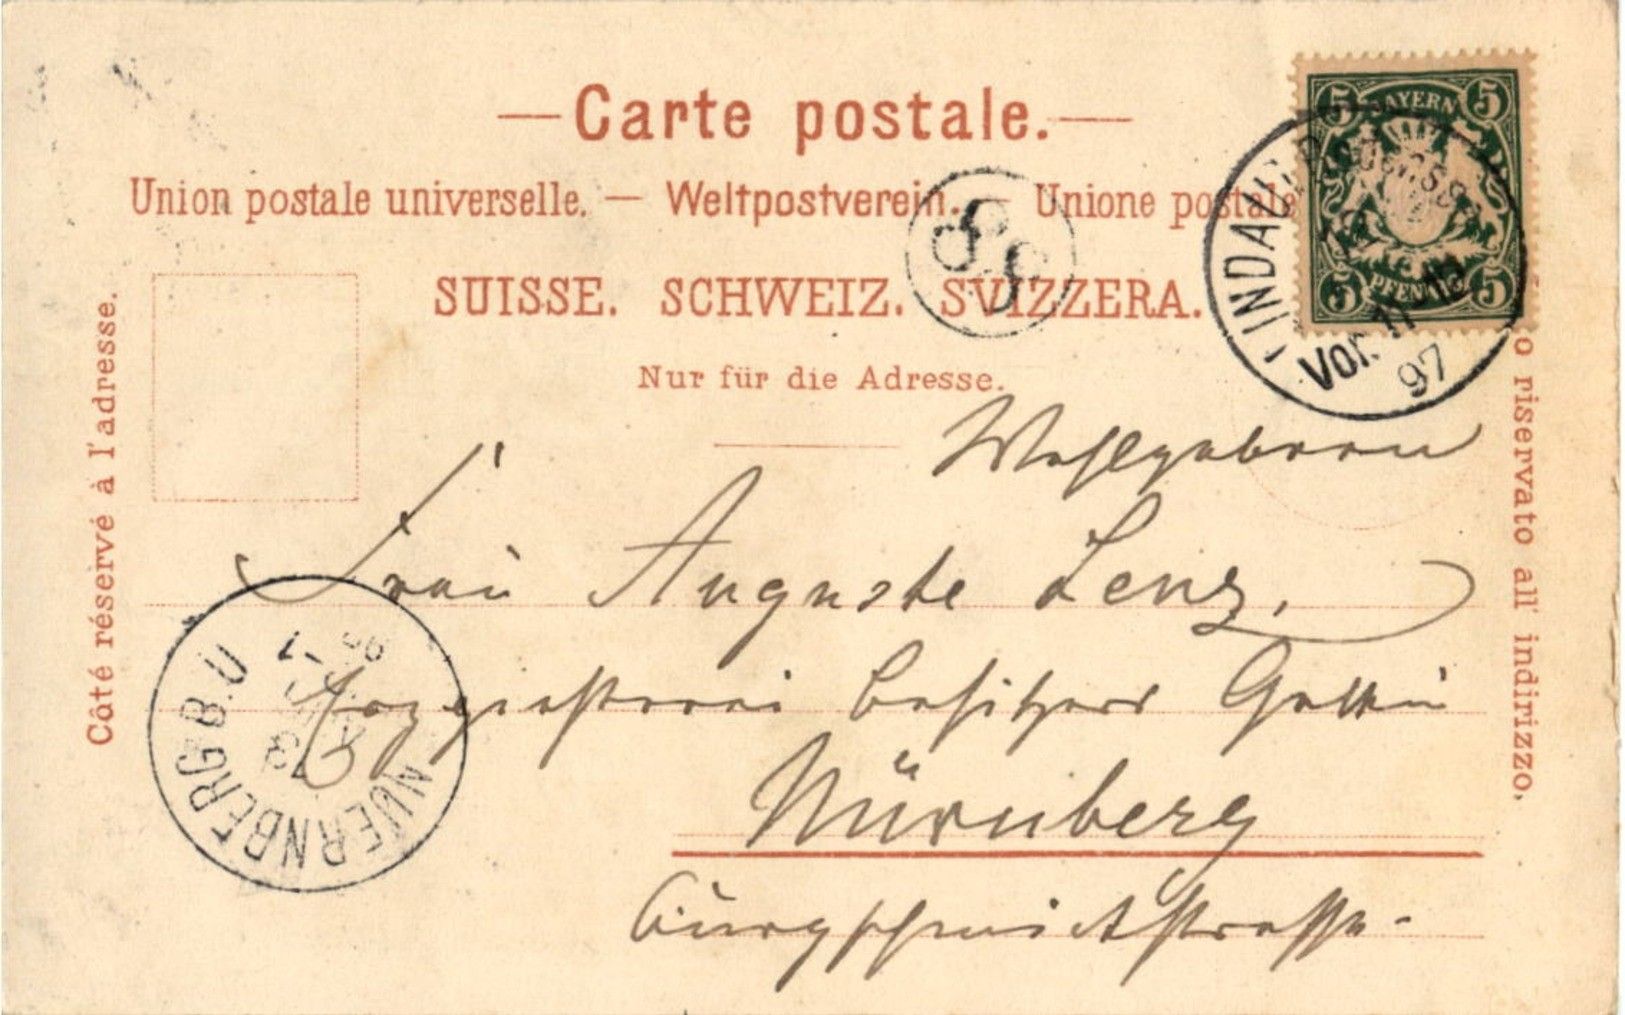 Carte postale.
Union postale universelle. — Weltpostverein. — Unione postale
SUISSE. SCHWEIZ. SVIZZERA.
Nur für die Adresse.
Côté réservé à l'adresse.
riservato all' indirizzo.
BAYERN
5 5
5 5
PFENNIG
LINDAU
Vor. 11
97
Wohlgeboren
Frau Auguste Lenz,
besitzers Gattin
Nürnberg
Burgschmietstrasse
NUERNBERG B.U